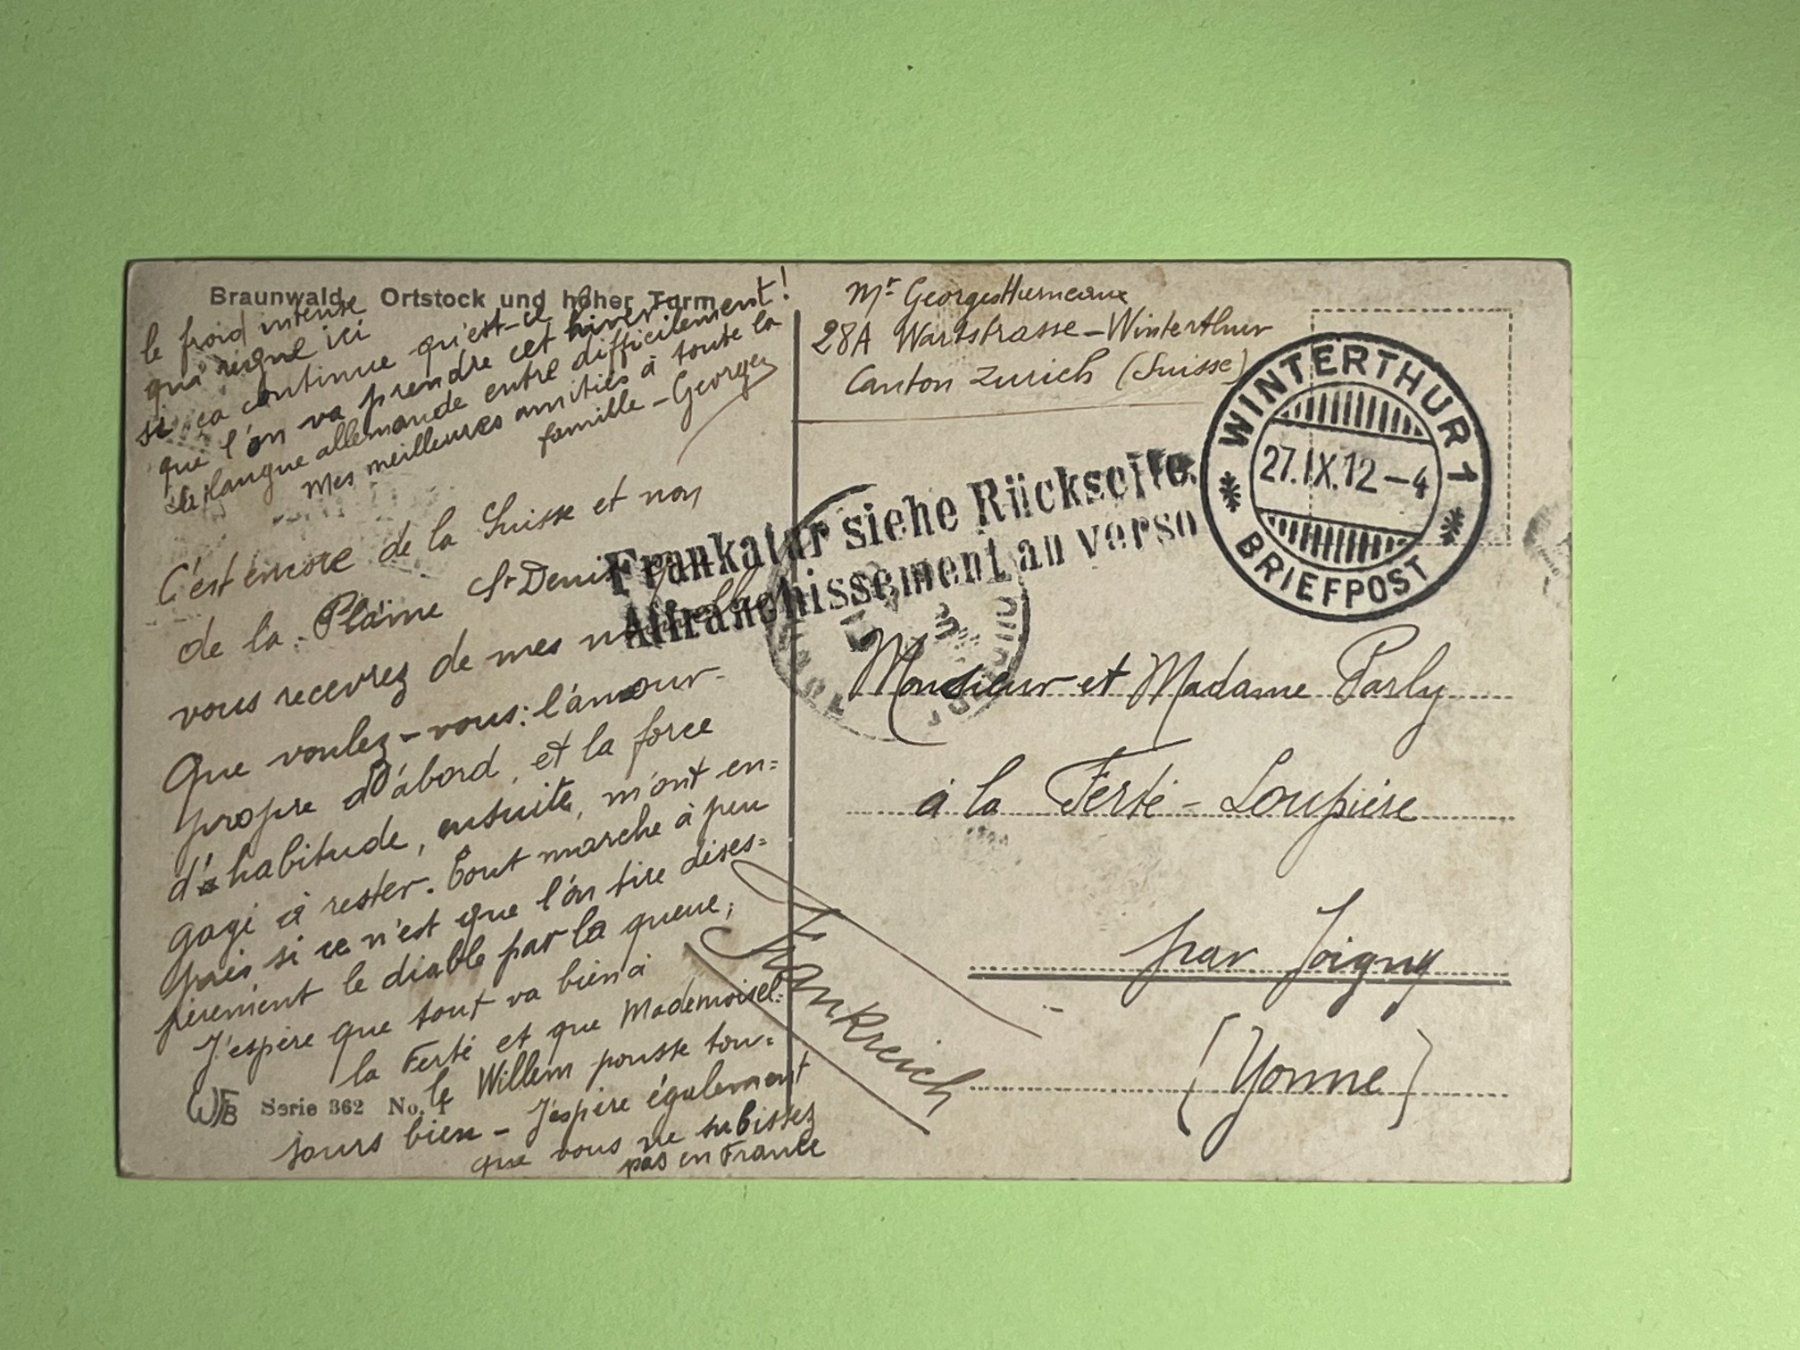 Braunwald. Ortstock und hoher Turm
C'est encore de la Suisse et non
de la Plaine St Denis que
vous recevrez de mes nouvelles
Que voulez-vous: l'amour-
propre d'abord, et la force
d'habitude, ensuite, m'ont en=
gagé à rester. Tout marche à peu
près si ce n'est que l'on tire déses=
pérement le diable par la queue;
J'espère que tout va bien à
la Ferté et que Mademoisel=
le Willem pousse tou=
jours bien - J'espère également
que vous ne subissez
pas en France
le froid intense
qui règne ici
si ça continue qu'est-ce
que l'on va prendre cet hiver
la langue allemande entre difficilement!
Mes meilleures amitiés à toute la
famille - Georges
WFB Serie 362 No. 1
Mr Georges
28A Wartstrasse - Winterthur
Canton Zurich (Suisse)
WINTERTHUR 1
27.IX.12-4
BRIEFPOST
Frankatur siehe Rückseite.
Affranchissement au verso
Monsieur et Madame Parly
à la Ferté-Loupière
par Joigny
(Yonne)
Frankreich